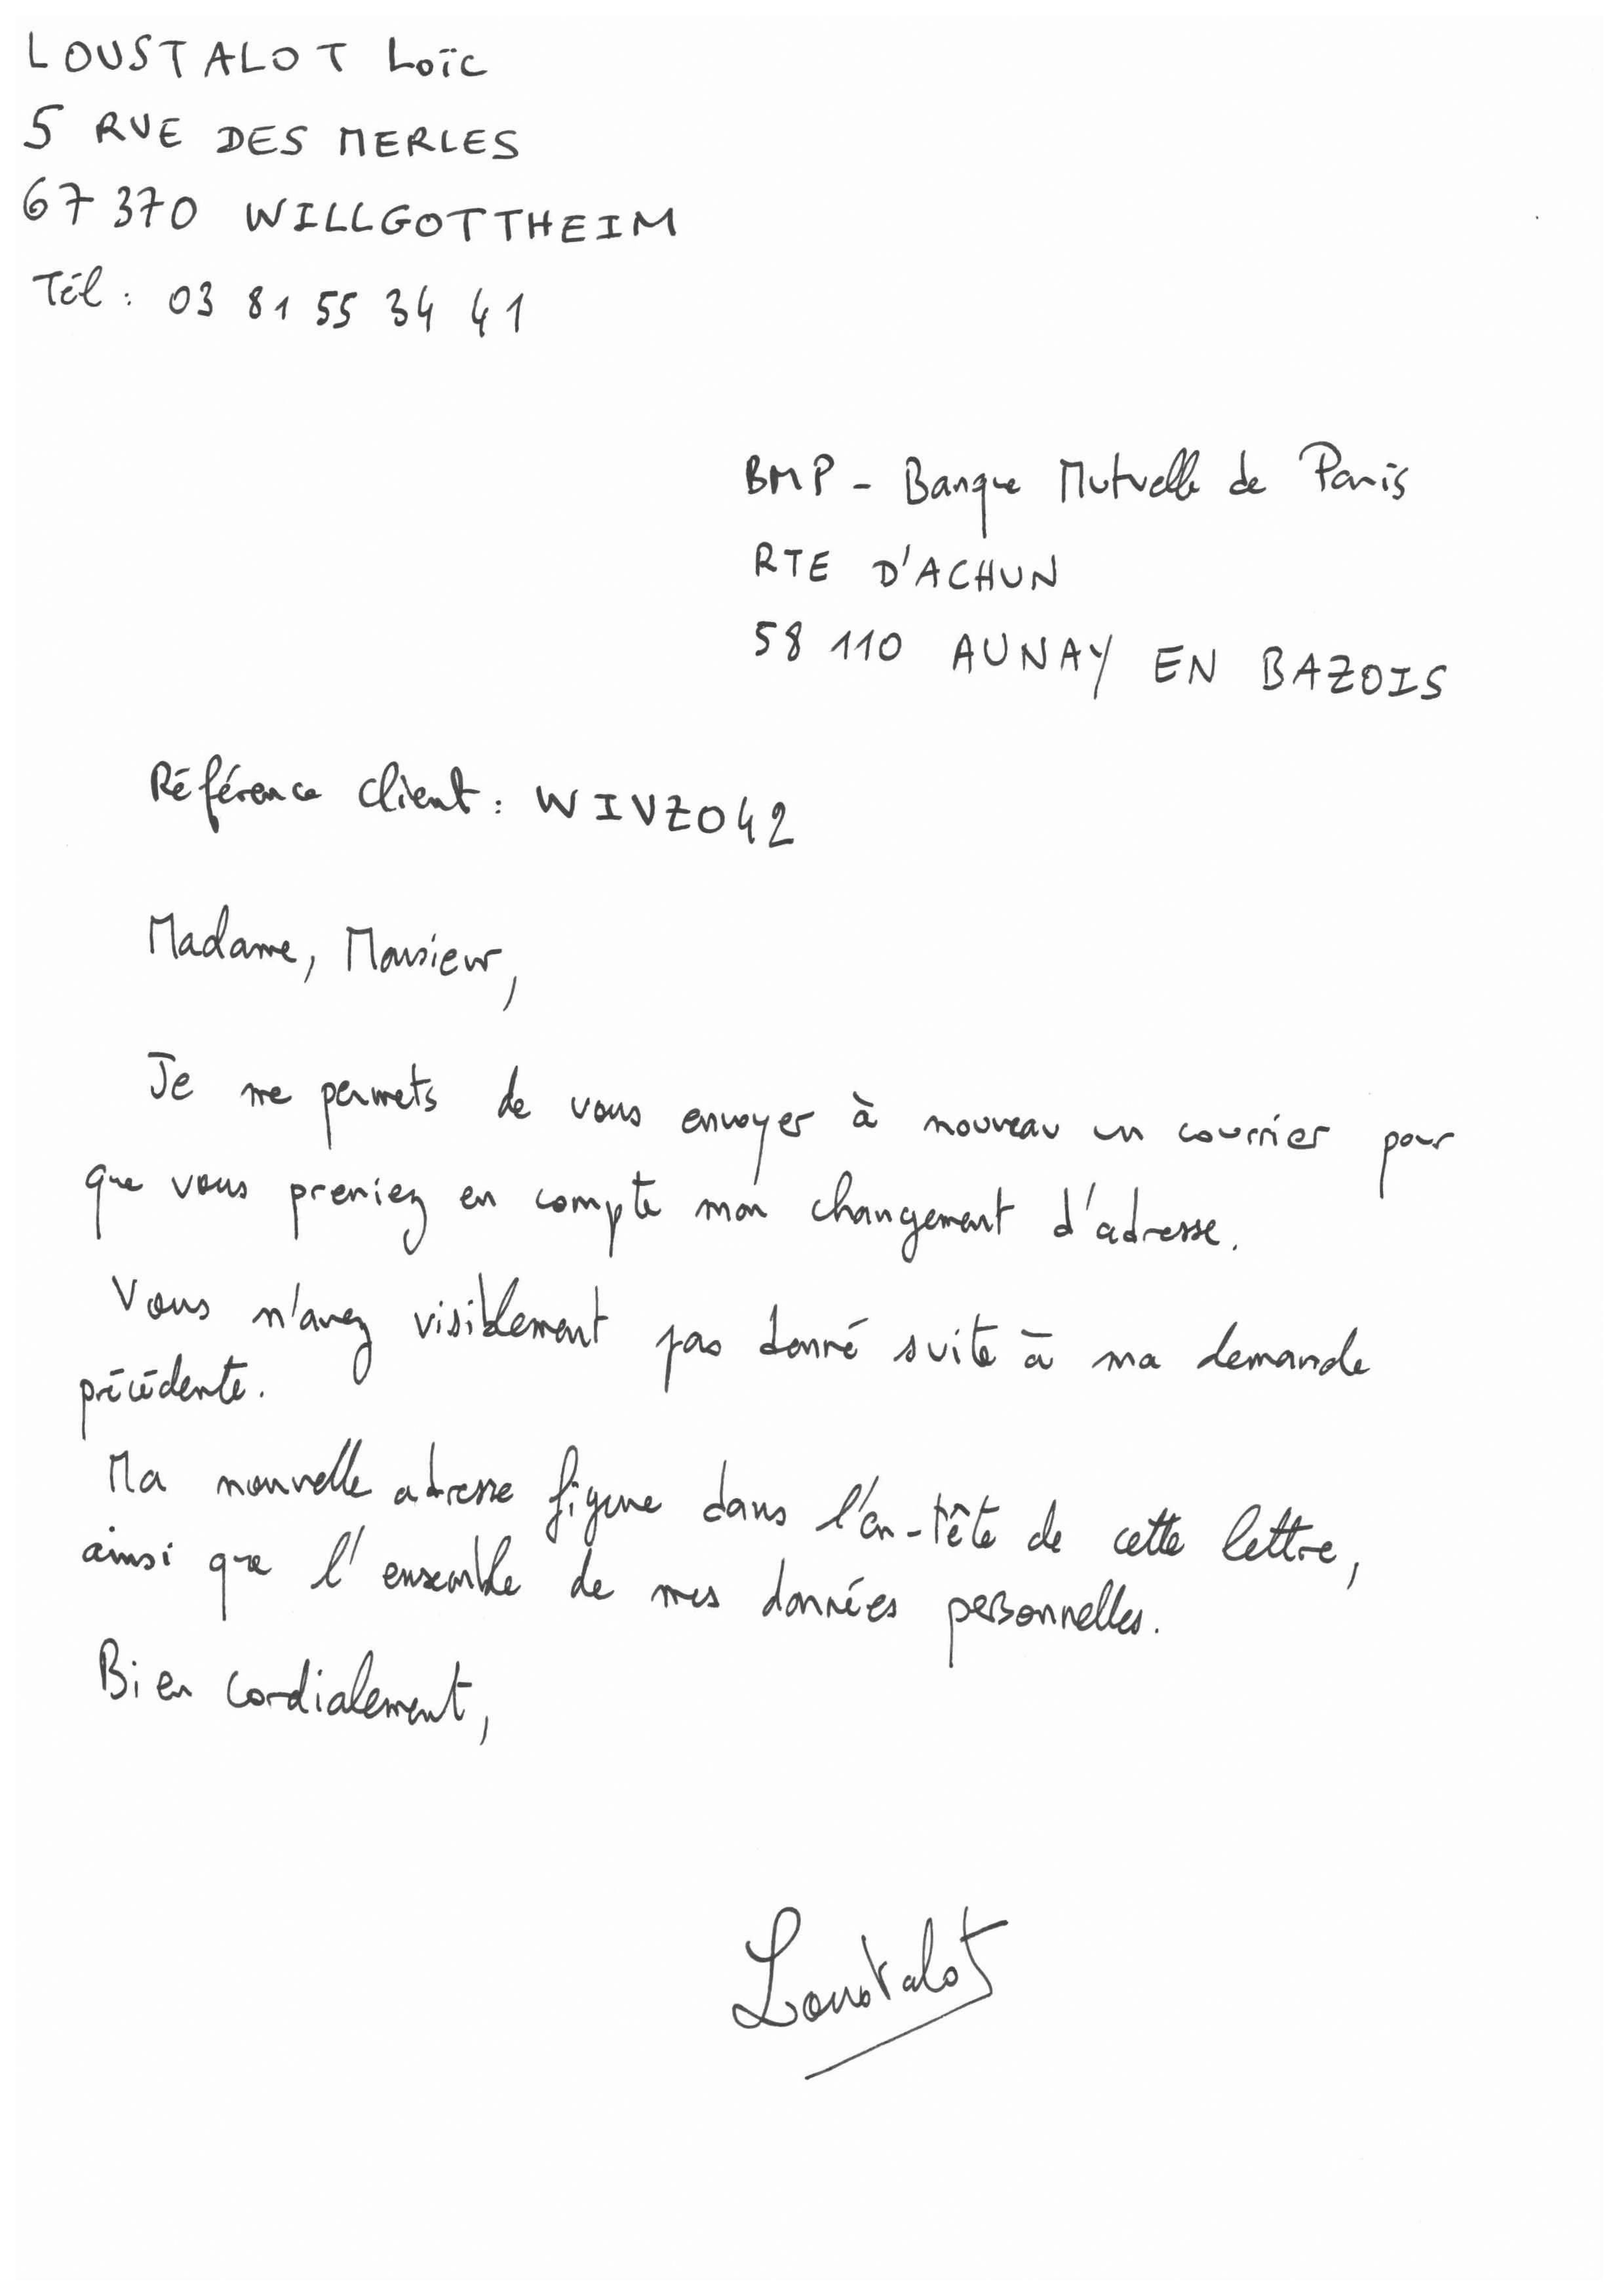 LOUSTALOT Loïc
5 RUE DES MERLES
67 370 WILLGOTTHEIM
Tél : 03 81 55 34 41
BMP - Banque Mutuelle de Paris
RTE D'ACHUN
58 110 AUNAY EN BAZOIS
Référence client : WIVZO42
Madame, Monsieur,
Je me permets de vous envoyer à nouveau un courrier pour
que vous preniez en compte mon changement d'adresse.
Vous n'avez visiblement pas donné suite à ma demande
précédente.
Ma nouvelle adresse figure dans l'en-tête de cette lettre,
ainsi que l'ensemble de mes données personnelles.
Bien cordialement,
Loustalot